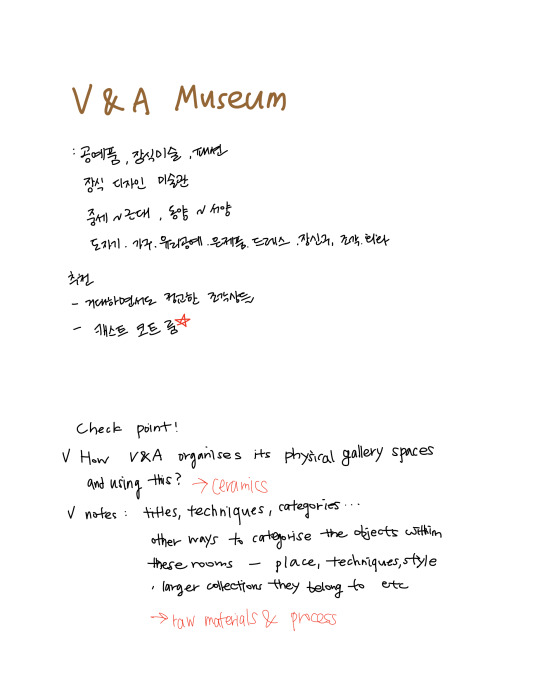 V & A Museum
: 공예품, 장식미술, 패션
장식 디자인 미술관
중세 ~ 근대, 동양 ~ 서양
도자기. 가구. 유리공예. 은제품. 드레스. 장신구, 조각. 회화
추천
- 거대하면서도 정교한 조각상들
- 캐스트 코트 룸☆
Check point!
V How V&A organises its physical gallery spaces
and using this? → ceramics
V notes: titles, techniques, categories...
other ways to categorise the objects within
these rooms – place, techniques, style
, larger collections they belong to etc
→ raw materials & process